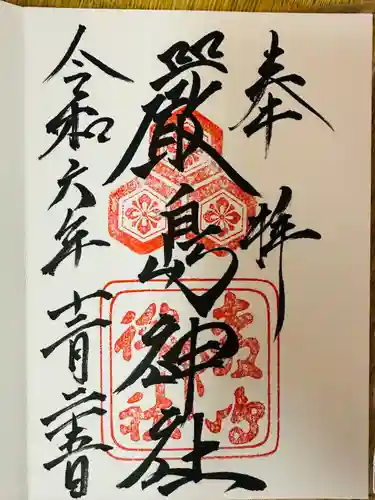 奉拝
嚴島神社
令和六年十二月二十五日